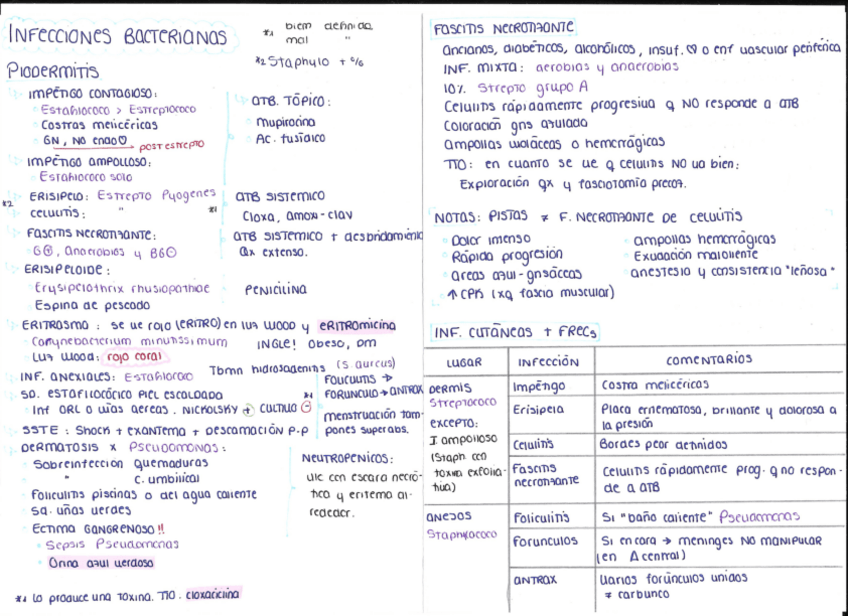 INFECCIONES BACTERIANAS
*1 bien definida
mal "
*2 Staphylo + %
PIODERMITIS
IMPÉTIGO CONTAGIOSO:
Estafilococo > Estreptococo
Costras melicéricas
GN, NO endo♡
post estrepto
ATB. TÓPICO:
Mupirocina
Ac. fusídico
IMPÉTIGO AMPOLLOSO:
Estafilococo solo
*2
ERISIPELO: Estrepto Pyogenes
CELULITIS: " *1
ATB SISTEMICO
Cloxa, amox-clav
FASCITIS NECROTIZANTE:
G⊕, Anaerobios y BG⊖
ATB SISTEMICO + desbridamiento
Qx extenso.
ERISIPELOIDE:
Erysipelothrix rhusiopathiae
Espina de pescado
PENICILINA
ERITRASMA: se ve rojo (ERITRO) en luz wood y ERITROMICINA
Corynebacterium minutissimum INGLE! obeso, DM
Luz wood: rojo coral
Tbmn hidrosadenitis (S. aureus)
INF. ANEXIALES: Estafilococo
FOLICULITIS →
FORUNCULO → ANTRAX
SD. ESTAFILOCÓCICO PIEL ESCALDADA *1
Inf ORL o vías aereas. NICKOLSKY + CULTIVO ⊖
SSTE: Shock + exantema + descamación p.p
menstruación tampones superabs.
DERMATOSIS x Pseudomonas:
Sobreinfeccion quemaduras
" c. umbilical
Foliculitis piscinas o del agua caliente
Sd. uñas verdes
Ectima GANGRENOSO!!
Sepsis Pseudomonas
Orina azul verdosa
NEUTROPENICOS:
ulc con escara necrótica y eritema alrededor.
*1 Lo produce una toxina. TTO. cloxacicilina
FASCITIS NECROTIZANTE
Ancianos, diabéticos, alcohólicos, insuf. ♡ o enf vascular periférica
INF. MIXTA: aerobios y anaerobios
10% Strepto grupo A
Celulitis rápidamente progresiva q NO responde a ATB
Coloración gris azulada
Ampollas violáceas o hemorrágicas
TTO: en cuanto se ve q celulitis NO va bien:
Exploración qx y fasciotomía precoz.
NOTAS: PISTAS ≠ F. NECROTIZANTE DE CELULITIS
Dolor imenso
Rápida progresión
areas azul-grisáceas
↑ CPK (xq fascia muscular)
ampollas hemorrágicas
Exudación maloliente
anestesia y consistencia "leñosa"
INF. CUTÁNEAS + FRECs
LUGAR INFECCIÓN COMENTARIOS
DERMIS
Streptococo
EXCEPTO:
I ampolloso
(Staph con
toxina exfolia-
tiva)
Impétigo Costra melicéricas
Erisipela Placa eritematosa, brillante y dolorosa a
la presión
Celulitis Bordes peor definidos
Fascitis
necrotizante
Celulitis rápidamente prog. q no respon-
de a ATB
ANEJOS
Staphylococo
Foliculitis Si "baño caliente" Pseudomonas
Forunculos Si en cara → meninges NO MANIPULAR
(en Δ central)
ANTRAX Varios forúnculos unidos
≠ carbunco